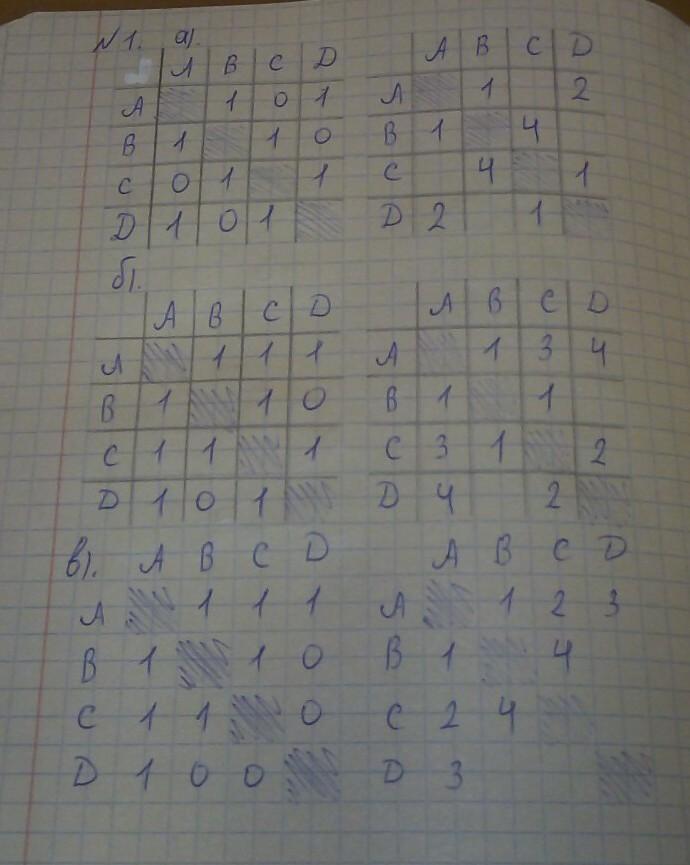 №1. а).
A B C D A B C D
A 1 0 1 A 1 2
B 1 1 0 B 1 4
C 0 1 1 C 4 1
D 1 0 1 D 2 1
б).
A B C D A B C D
A 1 1 1 A 1 3 4
B 1 1 0 B 1 1
C 1 1 1 C 3 1 2
D 1 0 1 D 4 2
в). A B C D A B C D
A 1 1 1 A 1 2 3
B 1 1 0 B 1 4
C 1 1 0 C 2 4
D 1 0 0 D 3